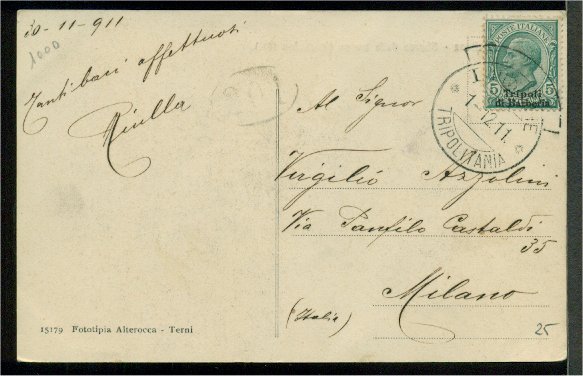 30-11-911
1000
Tanti baci affettuosi
POSTE ITALIANE
5 5
Tripoli
di Barberia
1-12.11.
* TRIPOLITANIA *
Al Signor
Virgilio Azzolini
Via Panfilo Castaldi
35
Milano
(Italia)
15179 Fototipia Alterocca - Terni
25